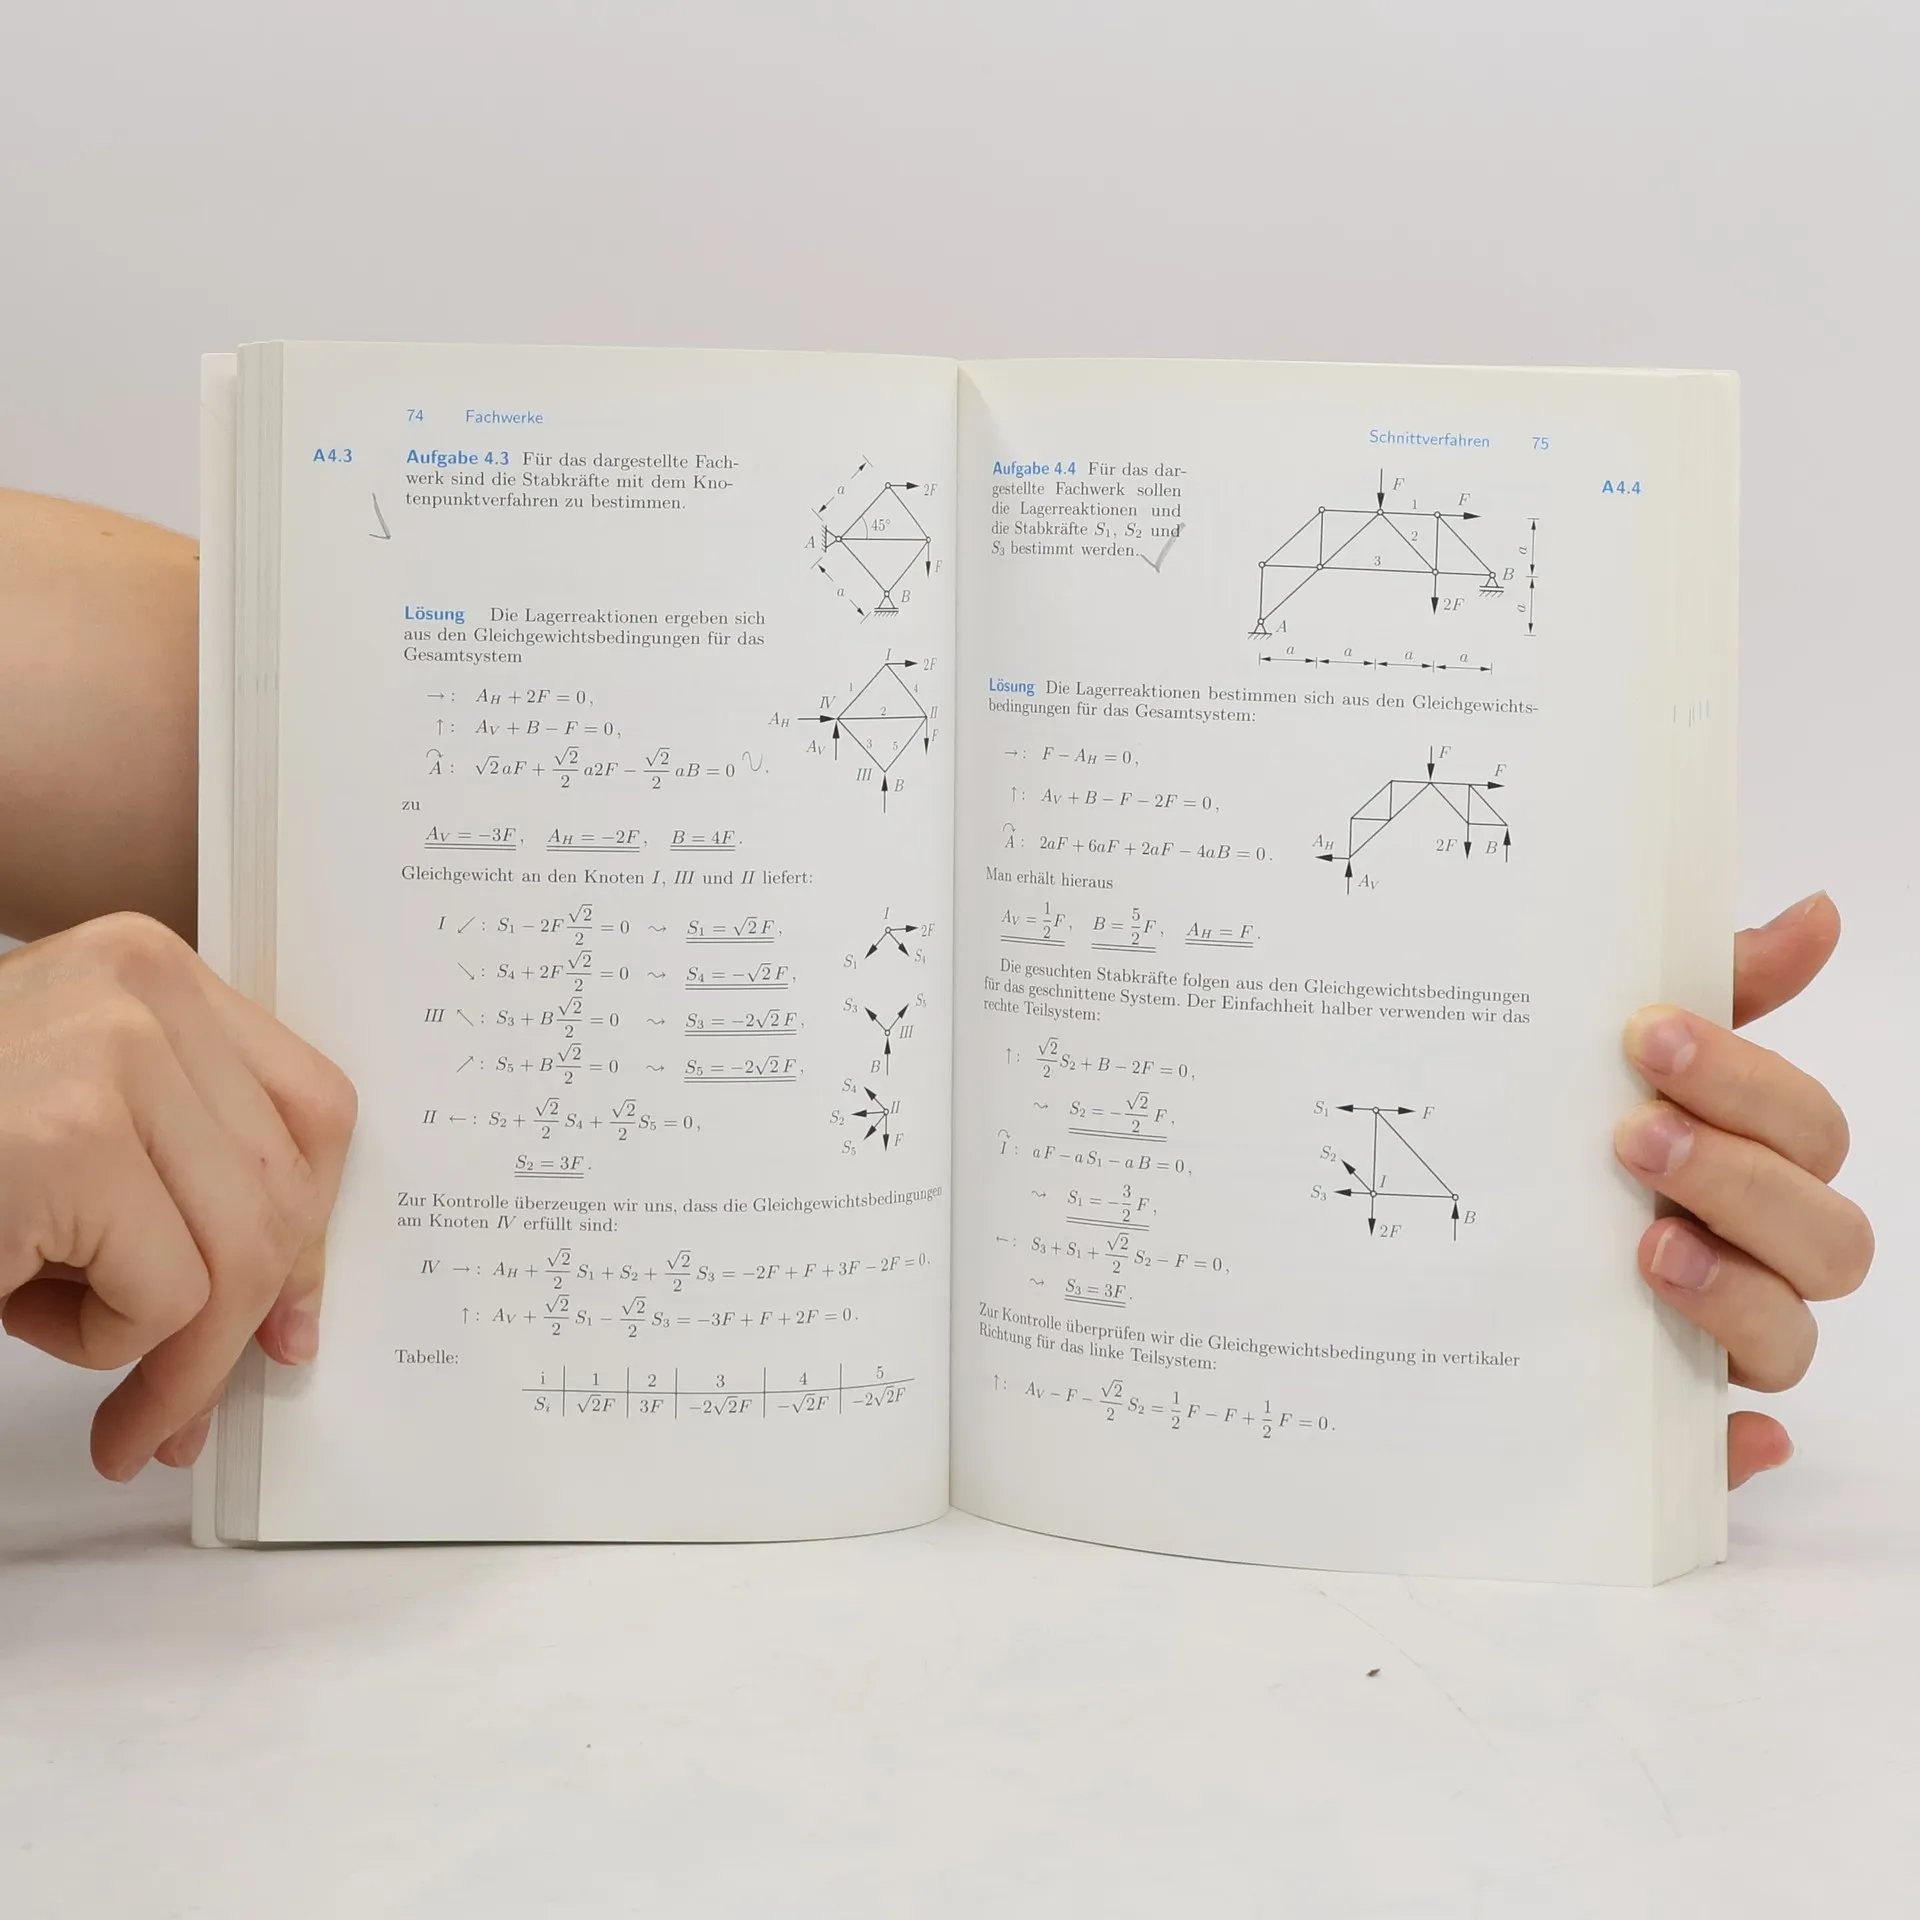 74 Fachwerke
A 4.3
Aufgabe 4.3 Für das dargestellte Fach-
werk sind die Stabkräfte mit dem Kno-
tenpunktverfahren zu bestimmen.
a
2F
45°
A
F
a
B
Lösung Die Lagerreaktionen ergeben sich
aus den Gleichgewichtsbedingungen für das
Gesamtsystem
→: A_H + 2F = 0,
↑: A_V + B − F = 0,
A: √2 aF + √2/2 a2F − √2/2 aB = 0.
I
2F
1
4
IV
2
II
A_H
F
A_V
3
5
III
B
zu
A_V = −3F, A_H = −2F, B = 4F.
Gleichgewicht an den Knoten I, III und II liefert:
I ↙: S₁ − 2F √2/2 = 0 ⇝ S₁ = √2 F,
↘: S₄ + 2F √2/2 = 0 ⇝ S₄ = −√2 F,
III ↖: S₃ + B √2/2 = 0 ⇝ S₃ = −2√2 F,
↗: S₅ + B √2/2 = 0 ⇝ S₅ = −2√2 F,
II ←: S₂ + √2/2 S₄ + √2/2 S₅ = 0,
S₂ = 3F.
I
2F
S₁
S₄
S₃
S₅
III
B
S₄
II
S₂
S₅
F
Zur Kontrolle überzeugen wir uns, dass die Gleichgewichtsbedingungen
am Knoten IV erfüllt sind:
IV →: A_H + √2/2 S₁ + S₂ + √2/2 S₃ = −2F + F + 3F − 2F = 0,
↑: A_V + √2/2 S₁ − √2/2 S₃ = −3F + F + 2F = 0.
Tabelle:
i 1 2 3 4 5
Sᵢ √2F 3F −2√2F −√2F −2√2F
Schnittverfahren 75
A 4.4
Aufgabe 4.4 Für das dar-
gestellte Fachwerk sollen
die Lagerreaktionen und
die Stabkräfte S₁, S₂ und
S₃ bestimmt werden.
F
F
1
2
3
a
B
2F
a
A
a a a a
Lösung Die Lagerreaktionen bestimmen sich aus den Gleichgewichts-
bedingungen für das Gesamtsystem:
→: F − A_H = 0,
↑: A_V + B − F − 2F = 0,
A: 2aF + 6aF + 2aF − 4aB = 0.
F
F
A_H
2F
B
A_V
Man erhält hieraus
A_V = 1/2 F, B = 5/2 F, A_H = F.
Die gesuchten Stabkräfte folgen aus den Gleichgewichtsbedingungen
für das geschnittene System. Der Einfachheit halber verwenden wir das
rechte Teilsystem:
↑: √2/2 S₂ + B − 2F = 0,
⇝ S₂ = −√2/2 F,
I: aF − aS₁ − aB = 0,
⇝ S₁ = −3/2 F,
←: S₃ + S₁ + √2/2 S₂ − F = 0,
⇝ S₃ = 3F.
S₁
F
S₂
I
S₃
B
2F
Zur Kontrolle überprüfen wir die Gleichgewichtsbedingung in vertikaler
Richtung für das linke Teilsystem:
↑: A_V − F − √2/2 S₂ = 1/2 F − F + 1/2 F = 0.